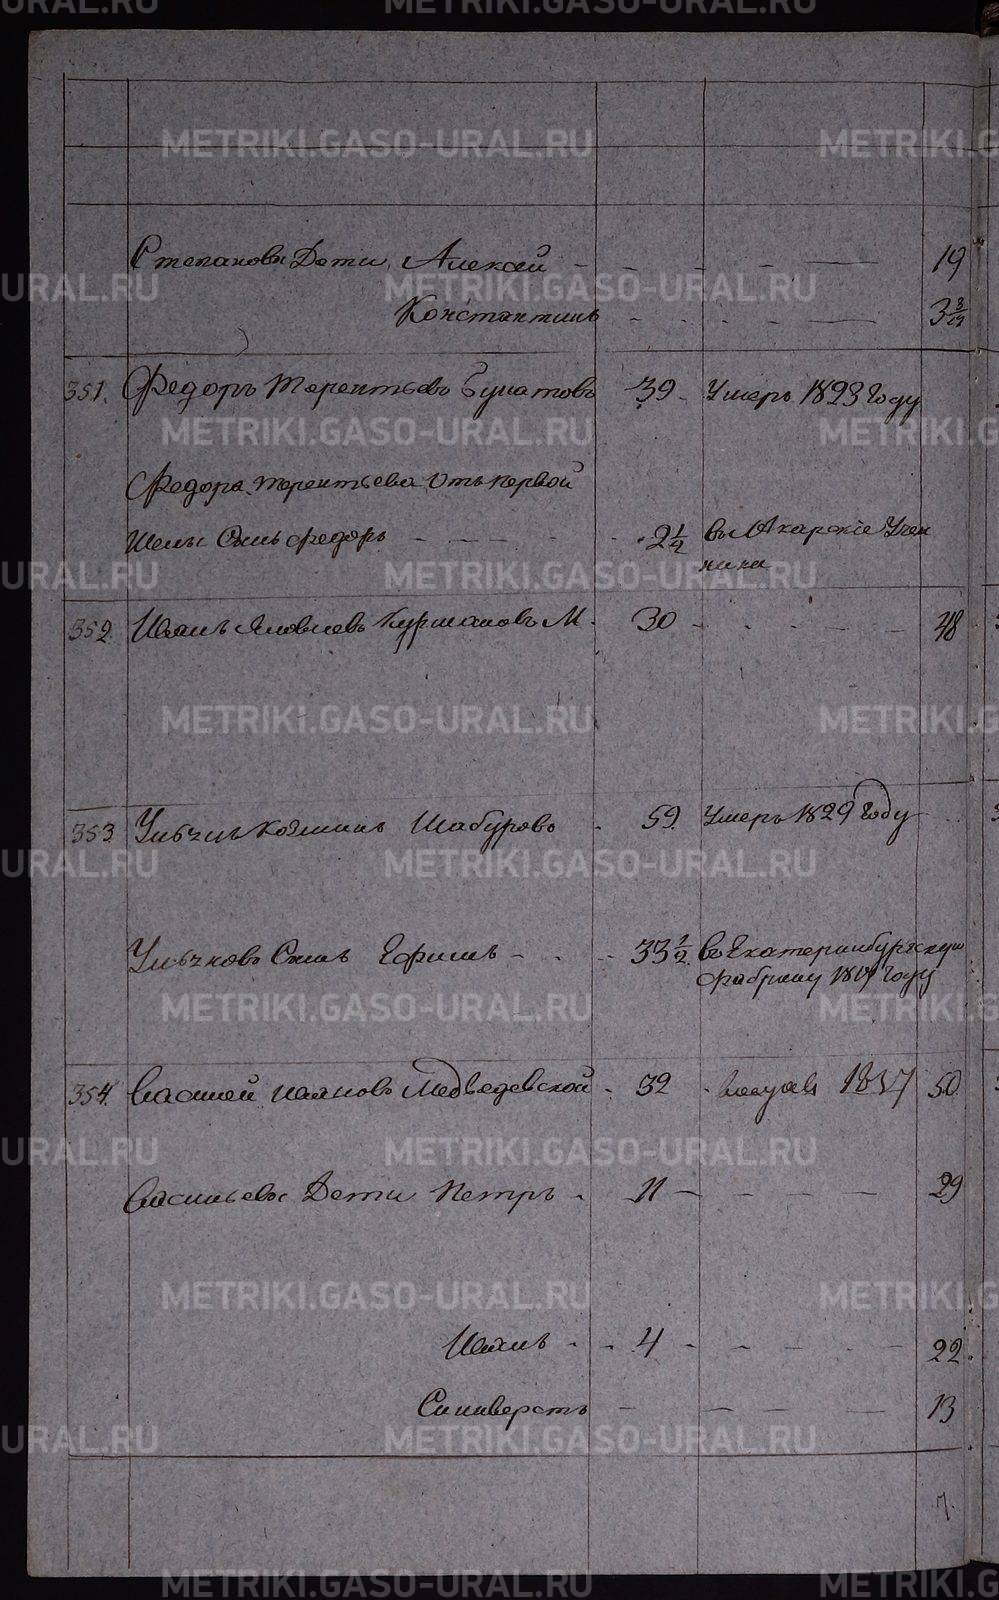 Степановы Дети Алексей - - - - 19
Константинъ - - - - 3 3/4
351. Федоръ Терентьевъ Булатовъ 39 - Умеръ 1823 Году
Федора Терентьева Отъ первой
Жены Сынъ Федоръ - - - - 2 1/2 въ Лекарскіе Учен
ики
352. Иванъ Яковлевъ М. 30 - - - - 48
353. Ульянъ Козминъ Шабуровъ - 59. Умеръ 1829 Году
Сынъ Ефимъ - - - 33 1/2 въ Екатеринбургскую
Фабрику Году
354. Василей Ивановъ Медведевской - 32 - 1837 50
Васильевы Дети Петръ - 11 - - - - 29
Иванъ - - 4 - - - - 22.
Силиверстъ - - - - 13
7.
METRIKI.GASO-URAL.RU